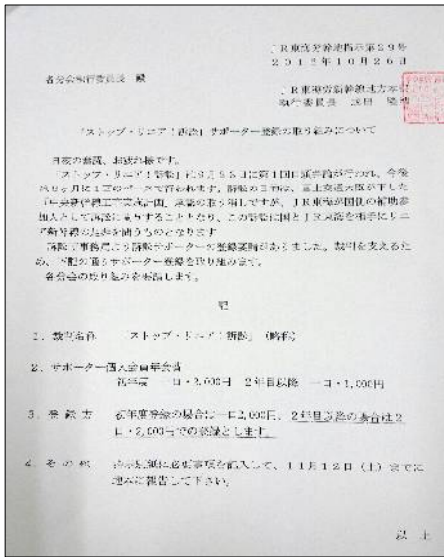 JR東海労新幹地指示第29号
2016年10月26日
各分会執行委員長 殿
JR東海労新幹線地方本部
執行委員長
「ストップ・リニア！訴訟」サポーター登録の取り組みについて
日夜の奮闘、お疲れ様です。
「ストップ・リニア！訴訟」は9月23日に第1回口頭弁論が行われ、今後
訴訟の目的は、国土交通大臣が下した
「中央新幹線工事実施計画」認可の取り消しですが、JR東海が国側の補助参
加人として訴訟に参加することとなり、この訴訟は国とJR東海を相手にリニ
ア新幹線の是非を問うものとなります
訴訟事務局より訴訟サポーターの登録要請がありました。裁判を支えるた
め、下記の通りサポーター登録を取り組みます。
各分会の取り組みを要請します。
記
1．裁判名称 「ストップ・リニア！訴訟」（略称）
2．サポーター個人会員年会費
初年度 一口・2,000円 2年目以降 一口・1,000円
3．登録方 初年度登録の場合は一口2,000円、2年目以降の場合は2
口・2,000円での登録とします。
4．その他 に必要事項を記入して、11月12日（土）までに
地本に報告して下さい。
以上